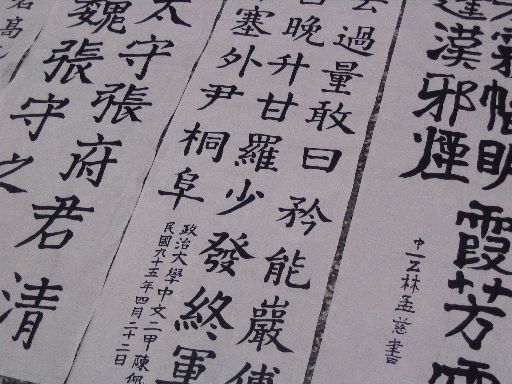 霧幡明霞芳
漢邪煙
中一乙林孟慈書
過量敢曰矜能巖傅
晚升甘羅少發終軍
塞外尹桐阜
政治大學中文二甲陳佩
民國九十五年四月二十二日
太守張府君清
魏張守之
高